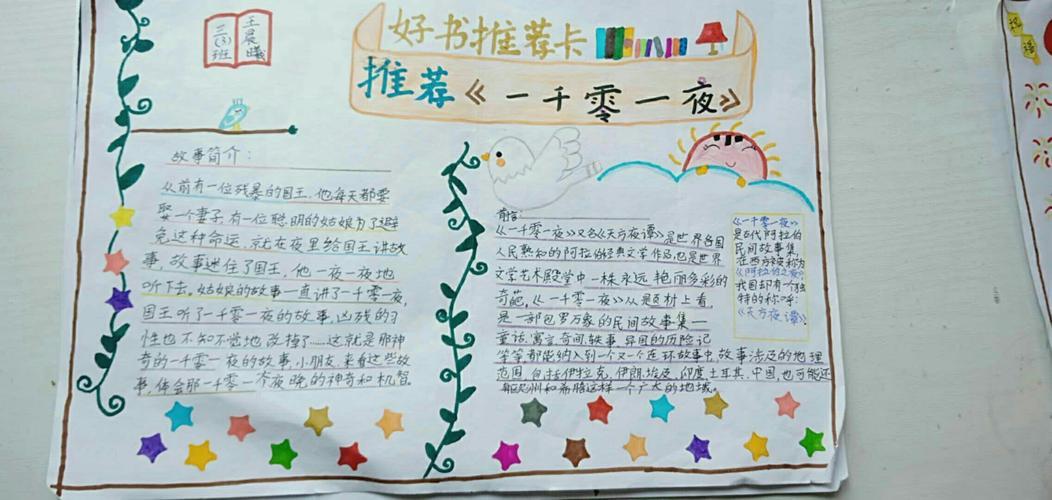 三(3)班
王晨曦
好书推荐卡
推荐《一千零一夜》
故事简介：
从前有一位残暴的国王,他每天都要
娶一个妻子,有一位聪明的姑娘为了避
免这种命运,就在夜里给国王讲故
事,故事迷住了国王,他一夜一夜地
听下去。姑娘的故事一直讲了一千零一夜,
国王听了一千零一夜的故事,凶残的习
性也不知不觉地改掉了……这就是那神
奇的一千零一夜的故事,小朋友,来看这些故
事,体会那一千零一个夜晚的神奇和机智。
《一千零一夜》又名《天方夜谭》是世界各国
人民熟知的阿拉伯经典文学作品,也是世界
文学艺术殿堂中一株永远艳丽多彩的
奇葩,《一千零一夜》从题材上看,
是一部包罗万象的民间故事集—
童话、寓言、奇闻、轶事、异国的历险记
等等,都能纳入到一个又一个连环故事中,故事涉及的地理
范围,包括伊拉克、伊朗、埃及、印度、土耳其、中国,也可能还
和希腊这样一个广大的地域。
《一千零一夜》
是古代阿拉伯
民间故事集,
在西方被称为
《阿拉伯之夜》
我国却有个独
特的称呼:
《天方夜谭》。